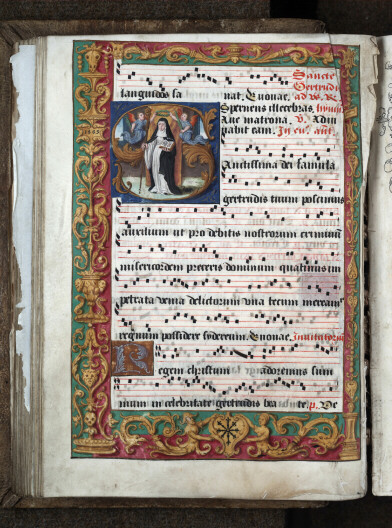 Sancte
languidos sa nat. Evovae. Gertrudi
ad w. R.
Spernens illecebras. hymn
Ave matrona. v. Adiu
vabit eam. In ev. ant.
anctissima dei famula
gertrudis tuum poscimus
auxilium ut pro debitis nostrorum criminū
misericordem preceris dominum quatinus im
petrata venia delictorum una tecum meream
regnum possidere sydereum. Evovae. Invitatoriū
egem christum adoremus sum
mum in celebritate gertrudis bea p. Ve